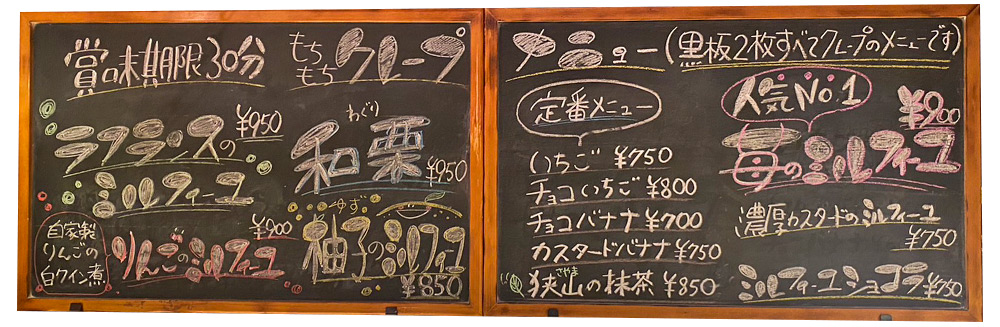 賞味期限30分
もちもちクレープ
ラフランスの
ミルフィーユ
¥950
わぐり
和栗
¥950
自家製
りんごの
白ワイン煮
りんごのミルフィーユ
¥900
ゆず
柚子のミルフィーユ
¥850
メニュー(黒板2枚すべてクレープのメニューです)
定番メニュー
いちご ¥750
チョコいちご ¥800
チョコバナナ ¥700
カスタードバナナ ¥750
さやま
狭山の抹茶 ¥850
人気No.1
苺のミルフィーユ
¥900
濃厚カスタードのミルフィーユ
¥750
ミルフィーユショコラ ¥750